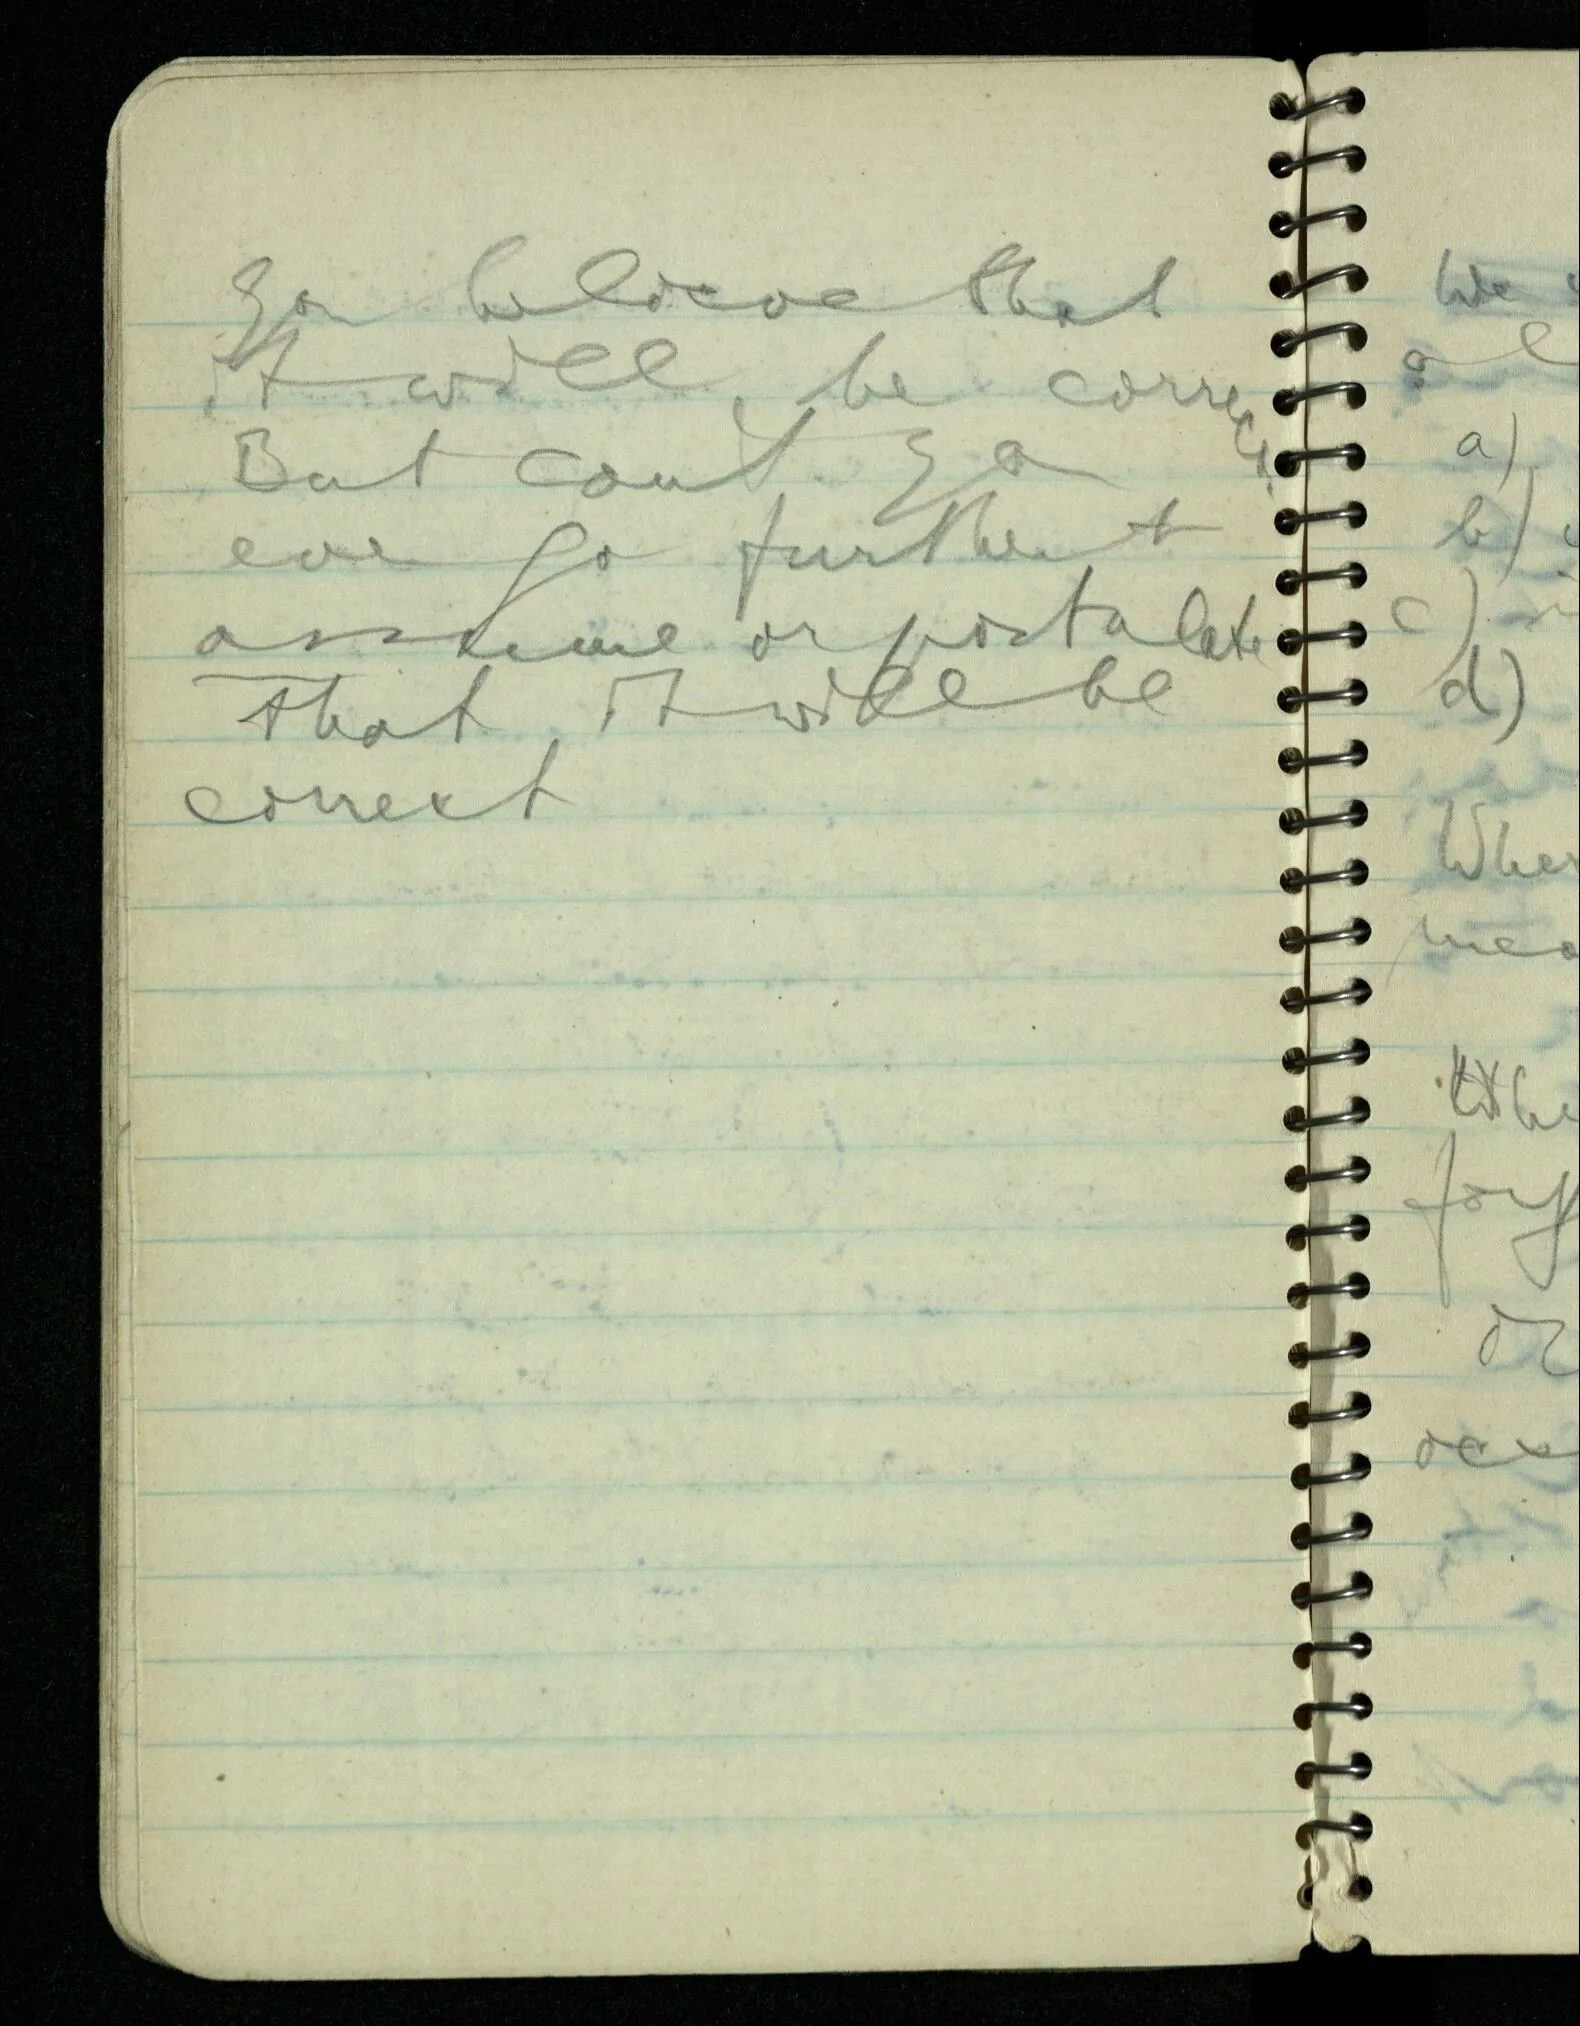 You believe that
it will be correct.
But can't you
even go further +
assume or postulate
that it will be
correct
We
al
a)
b)
c)
d)
When
mea
Whe
for
or